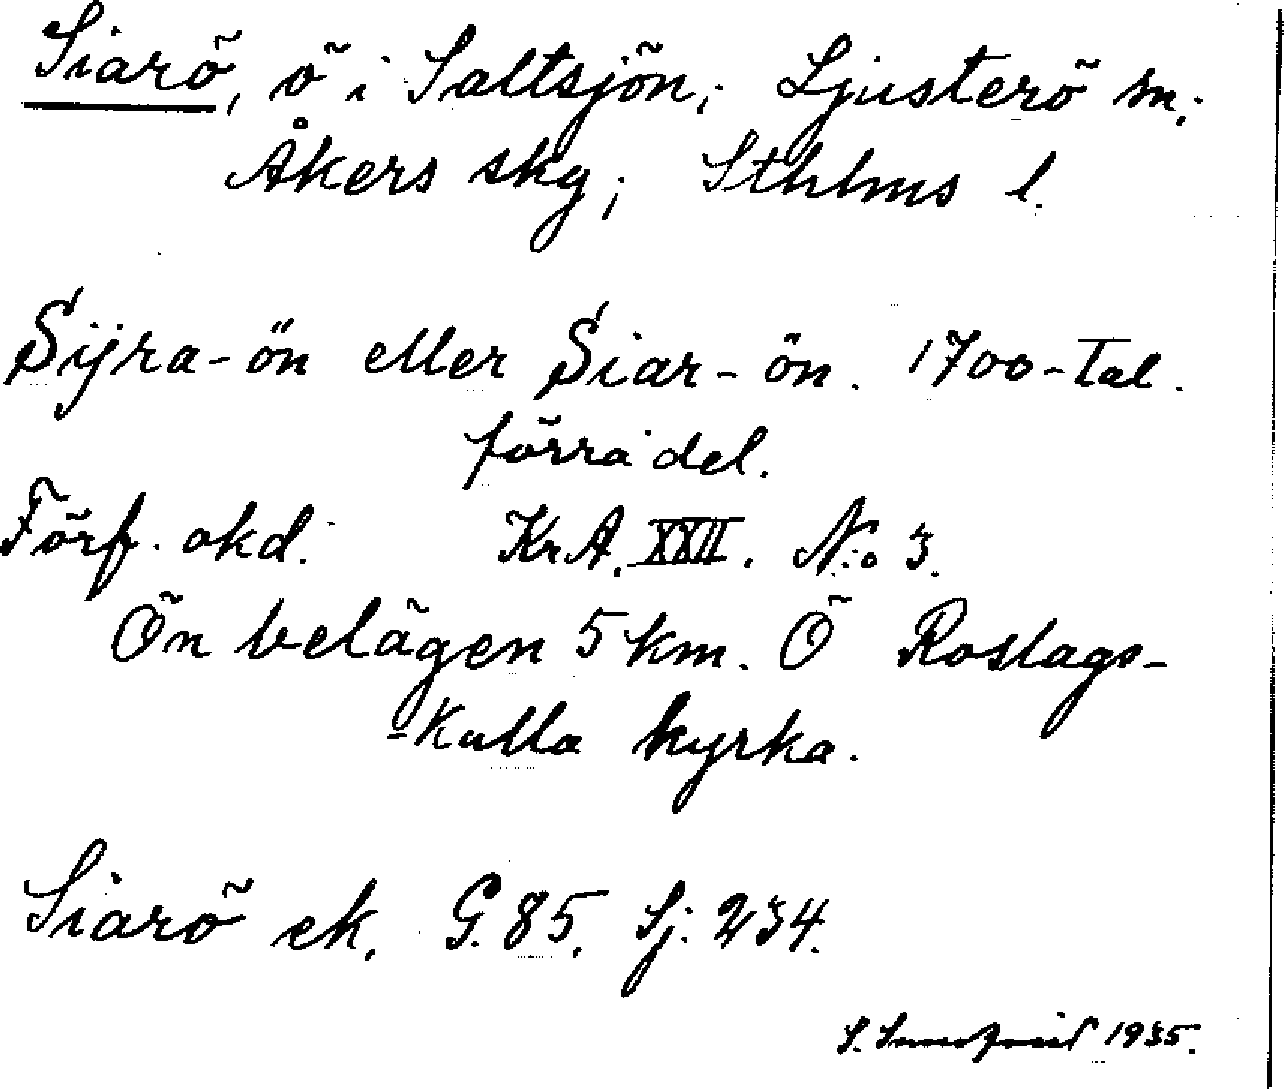 Siarö, ö i Saltsjön; Ljusterö sn;
Åkers skg; Sthlms l.
Sijra-ön eller Siar-ön. 1700-Tal.
förra del.
Förf. okd. KrA. XXII. N:o 3.
Ön belägen 5 km. Ö Roslags-
-Kulla kyrka.
Siarö ek. G. 85. Sj: 234.
S. 1935.